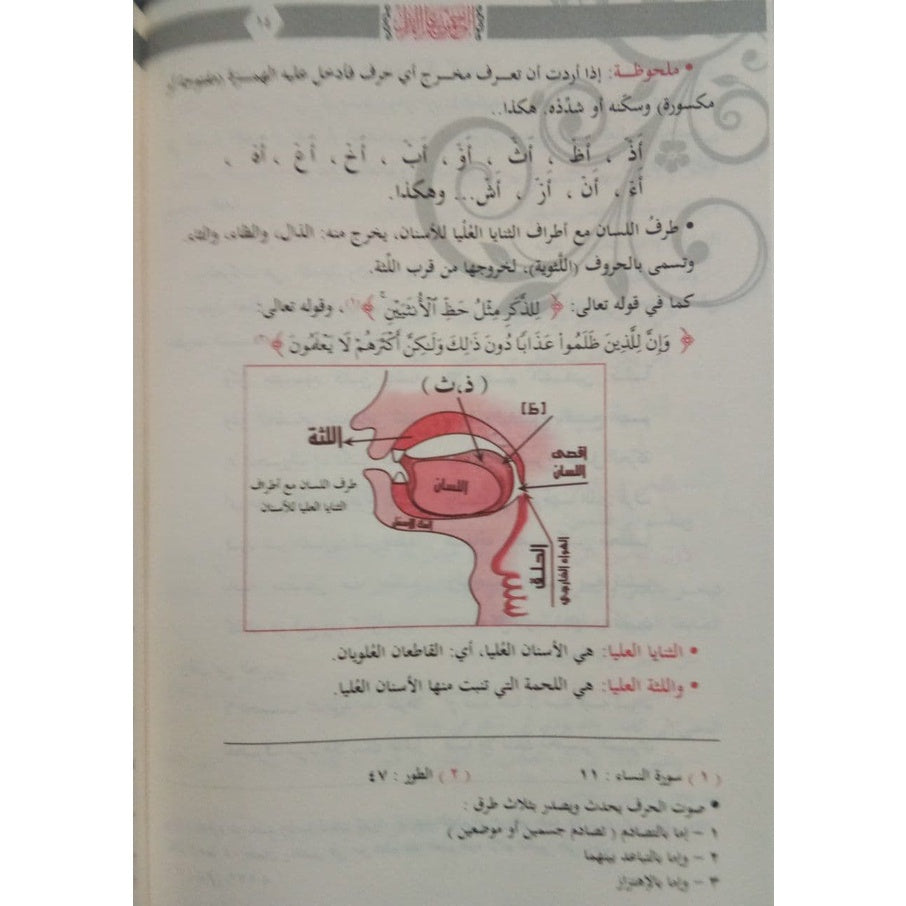 ١٥
• ملحوظة: إذا أردت أن تعرف مخرج أي حرف فأدخل عليه الهمزة (مفتوحة أو
مكسورة) وسكّنه أو شدّده. هكذا..
أَذْ ، أَظْ ، أَثْ ، أَوْ ، أَبْ ، أَخْ ، أَغْ ، أَهْ ،
أَعْ ، أَنْ ، أَزْ ، أَشْ... وهكذا.
• طرفُ اللسان مع أطراف الثنايا العُلْيا للأسنان، يخرج منه: الذال، والظاء، والثاء.
وتسمى بالحروف (اللِّثوية)، لخروجها من قرب اللِّثة.
كما في قوله تعالى: ﴿ لِلذَّكَرِ مِثْلُ حَظِّ ٱلْأُنثَيَيْنِ ۚ ﴾(١)، وقوله تعالى:
﴿ وَإِنَّ لِلَّذِينَ ظَلَمُوا۟ عَذَابًا دُونَ ذَٰلِكَ وَلَٰكِنَّ أَكْثَرَهُمْ لَا يَعْلَمُونَ ﴾(٢)
( ذ،ث )
[ظ]
اللثة
أقصى
اللسان
اللسان
طرف اللسان مع أطراف
الثنايا العليا للأسنان
الحلق
الهواء الخارجي
• الثنايا العليا: هي الأسنان العُليا، أي: القاطعان العُلويان.
• واللثة العليا: هي اللحمة التي تنبت منها الأسنان العُليا.
( ١ ) سورة النساء : ١١ ( ٢ ) الطور : ٤٧
• صوت الحرف يحدث ويصدر بثلاث طرق :
١ - إما بالتصادم ( تصادم جسمين أو موضعين )
٢ - وإما بالتباعد بينهما
٣ - وإما بالإهتزاز